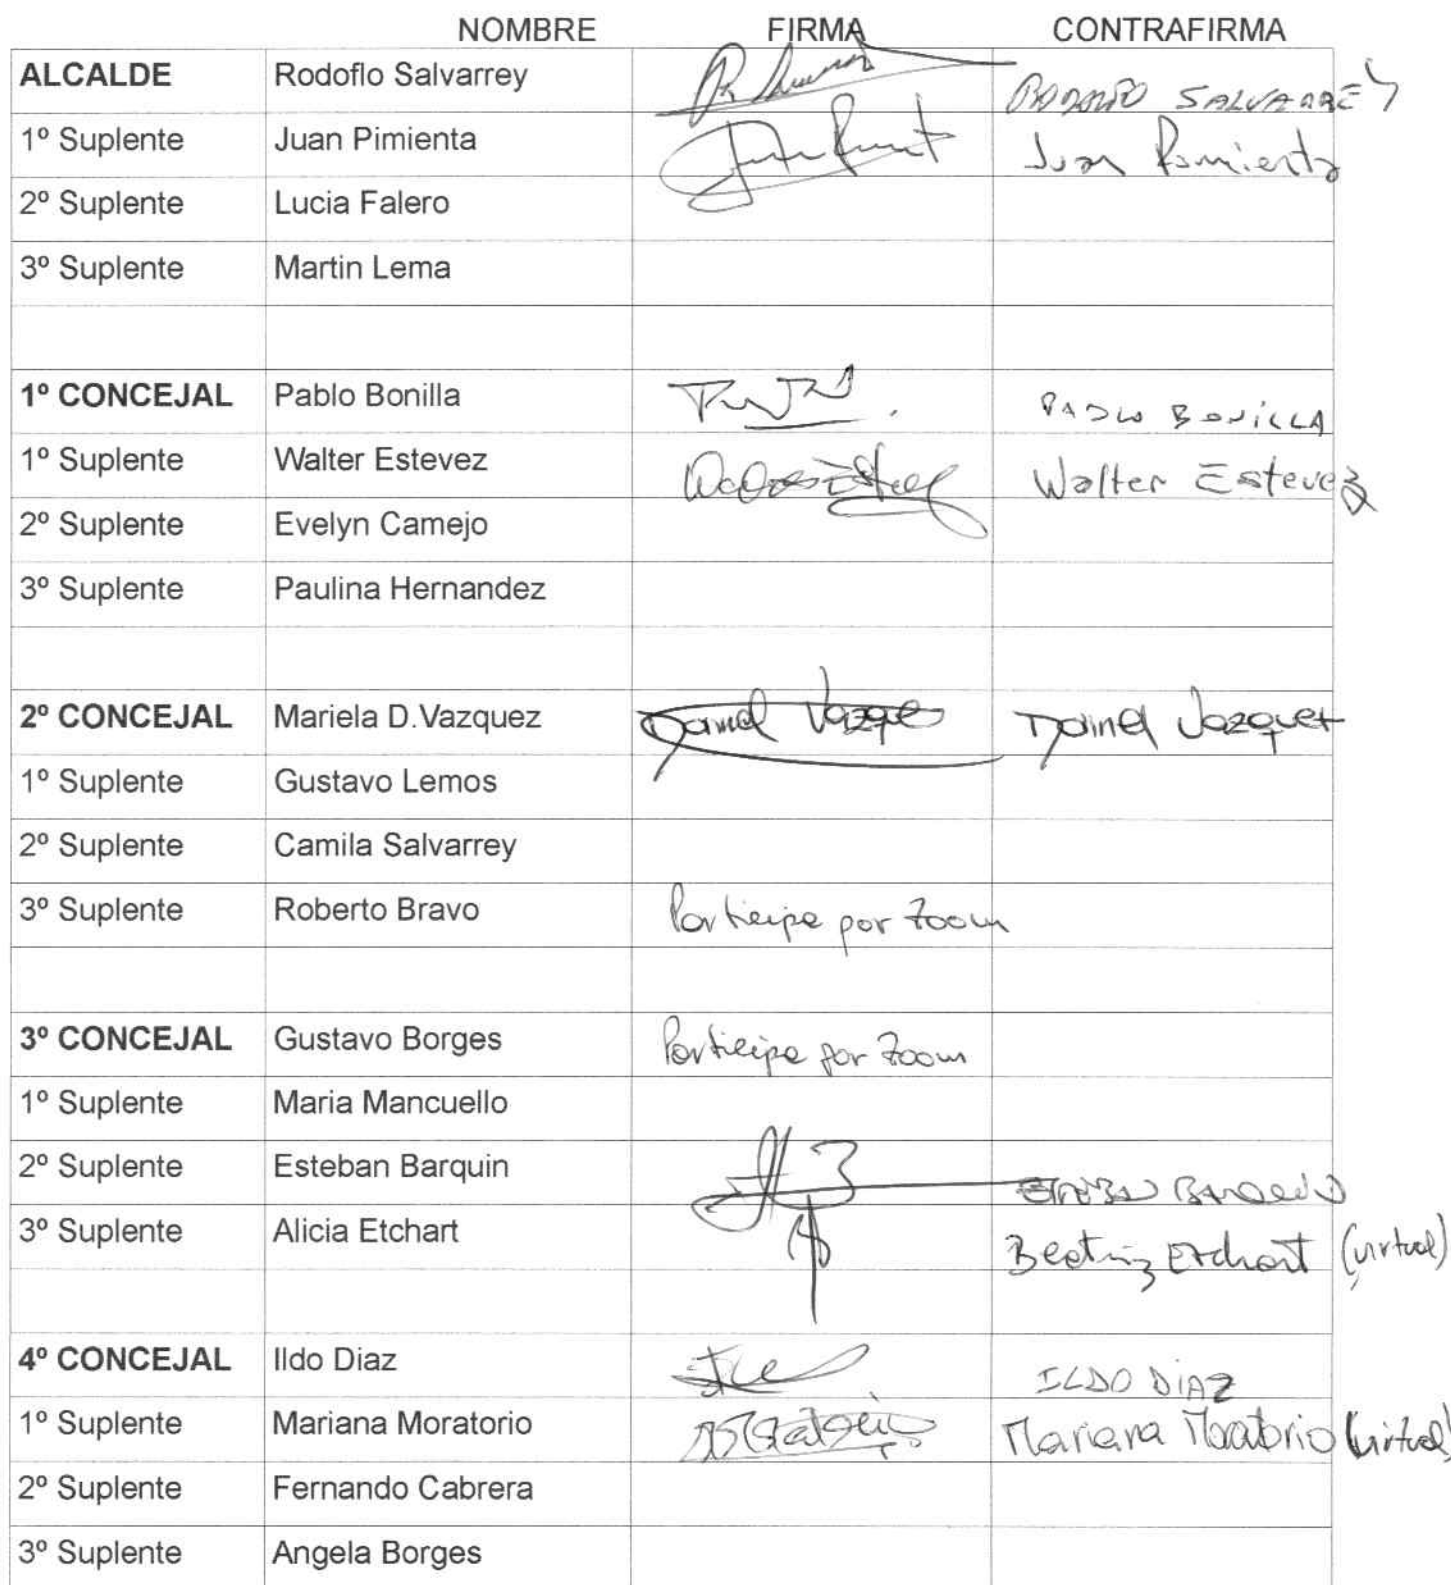 NOMBRE FIRMA CONTRAFIRMA
ALCALDE Rodoflo Salvarrey RODOLFO SALVARREY
1º Suplente Juan Pimienta Juan Pimienta
2º Suplente Lucia Falero
3º Suplente Martin Lema
1º CONCEJAL Pablo Bonilla PABLO BONILLA
1º Suplente Walter Estevez Walter Estevez
2º Suplente Evelyn Camejo
3º Suplente Paulina Hernandez
2º CONCEJAL Mariela D.Vazquez Daniel Vazquez Daniel Vazquez
1º Suplente Gustavo Lemos
2º Suplente Camila Salvarrey
3º Suplente Roberto Bravo Participa por Zoom
3º CONCEJAL Gustavo Borges Participa por Zoom
1º Suplente Maria Mancuello
2º Suplente Esteban Barquin ESTEBAN BARQUIN
3º Suplente Alicia Etchart Beatriz Etchart (virtual)
4º CONCEJAL Ildo Diaz ILDO DIAZ
1º Suplente Mariana Moratorio Mariana Moratorio (virtual)
2º Suplente Fernando Cabrera
3º Suplente Angela Borges